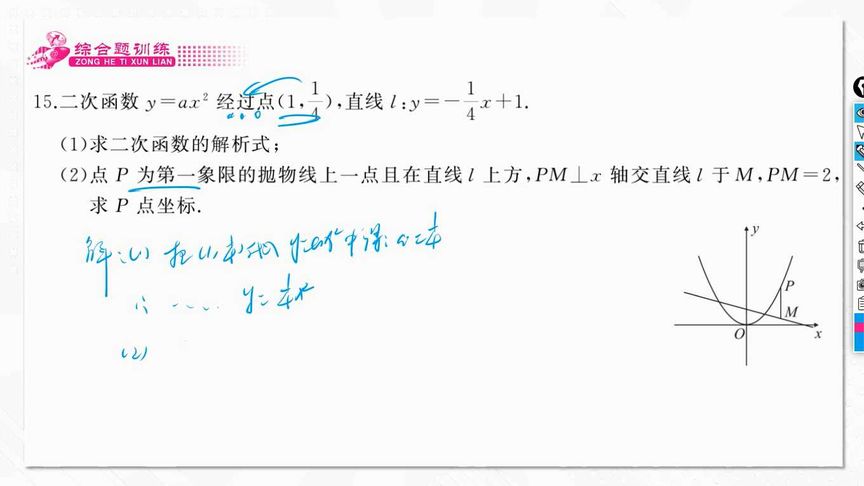 综合题训练
ZONG HE TI XUN LIAN
15.二次函数 y=ax² 经过点(1,1/4),直线 l:y=-1/4x+1.
(1)求二次函数的解析式;
(2)点 P 为第一象限的抛物线上一点且在直线 l 上方,PM⊥x 轴交直线 l 于 M,PM=2,
求 P 点坐标.
解:(1) 把(1,1/4)代入 y=ax²中得:a=1/4
∴ .... y=1/4x²
(2)
y
P
M
O
x